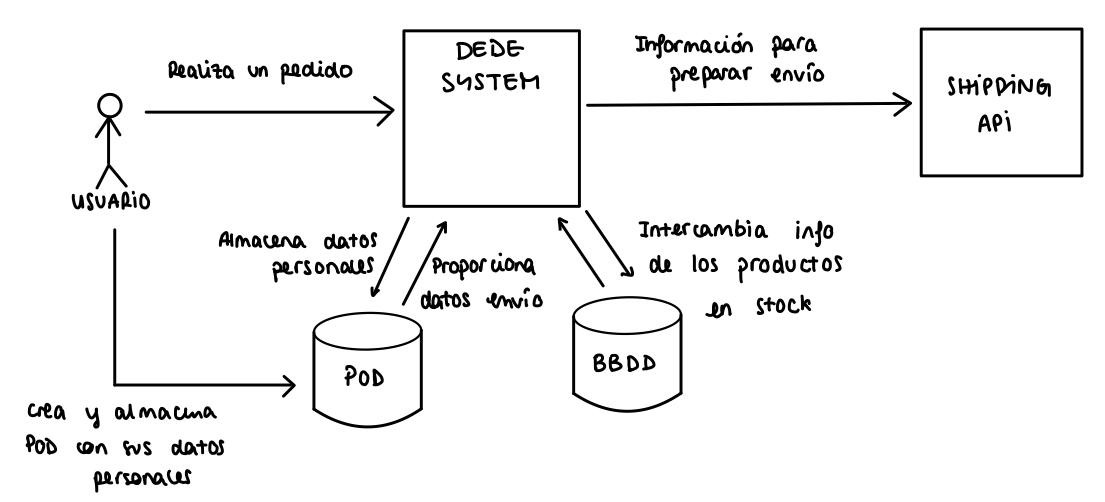 DEDE
SYSTEM
Realiza un pedido
Información para
preparar envío
SHIPPING
API
USUARIO
Almacena datos
personales
Proporciona
datos envío
Intercambia info
de los productos
en stock
POD
BBDD
crea y almacena
POD con sus datos
personales